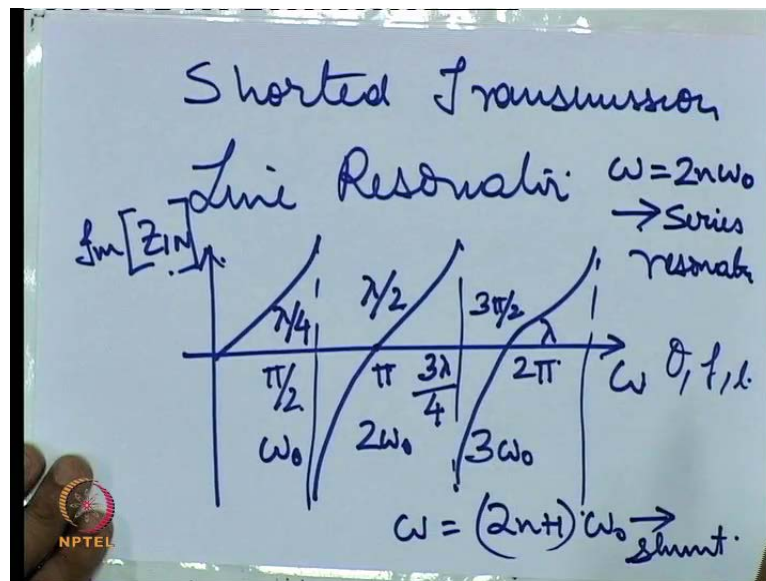 Shorted Transmission
Line Resonator
ω=2nω₀
→ Series
resonator
Im[ZIN]
λ/4
λ/2
3π/2
λ
π/2
π
3λ/4
2π
ω θ, f, l.
ω₀
2ω₀
3ω₀
ω = (2n+1) ω₀ →
shunt.
NPTEL